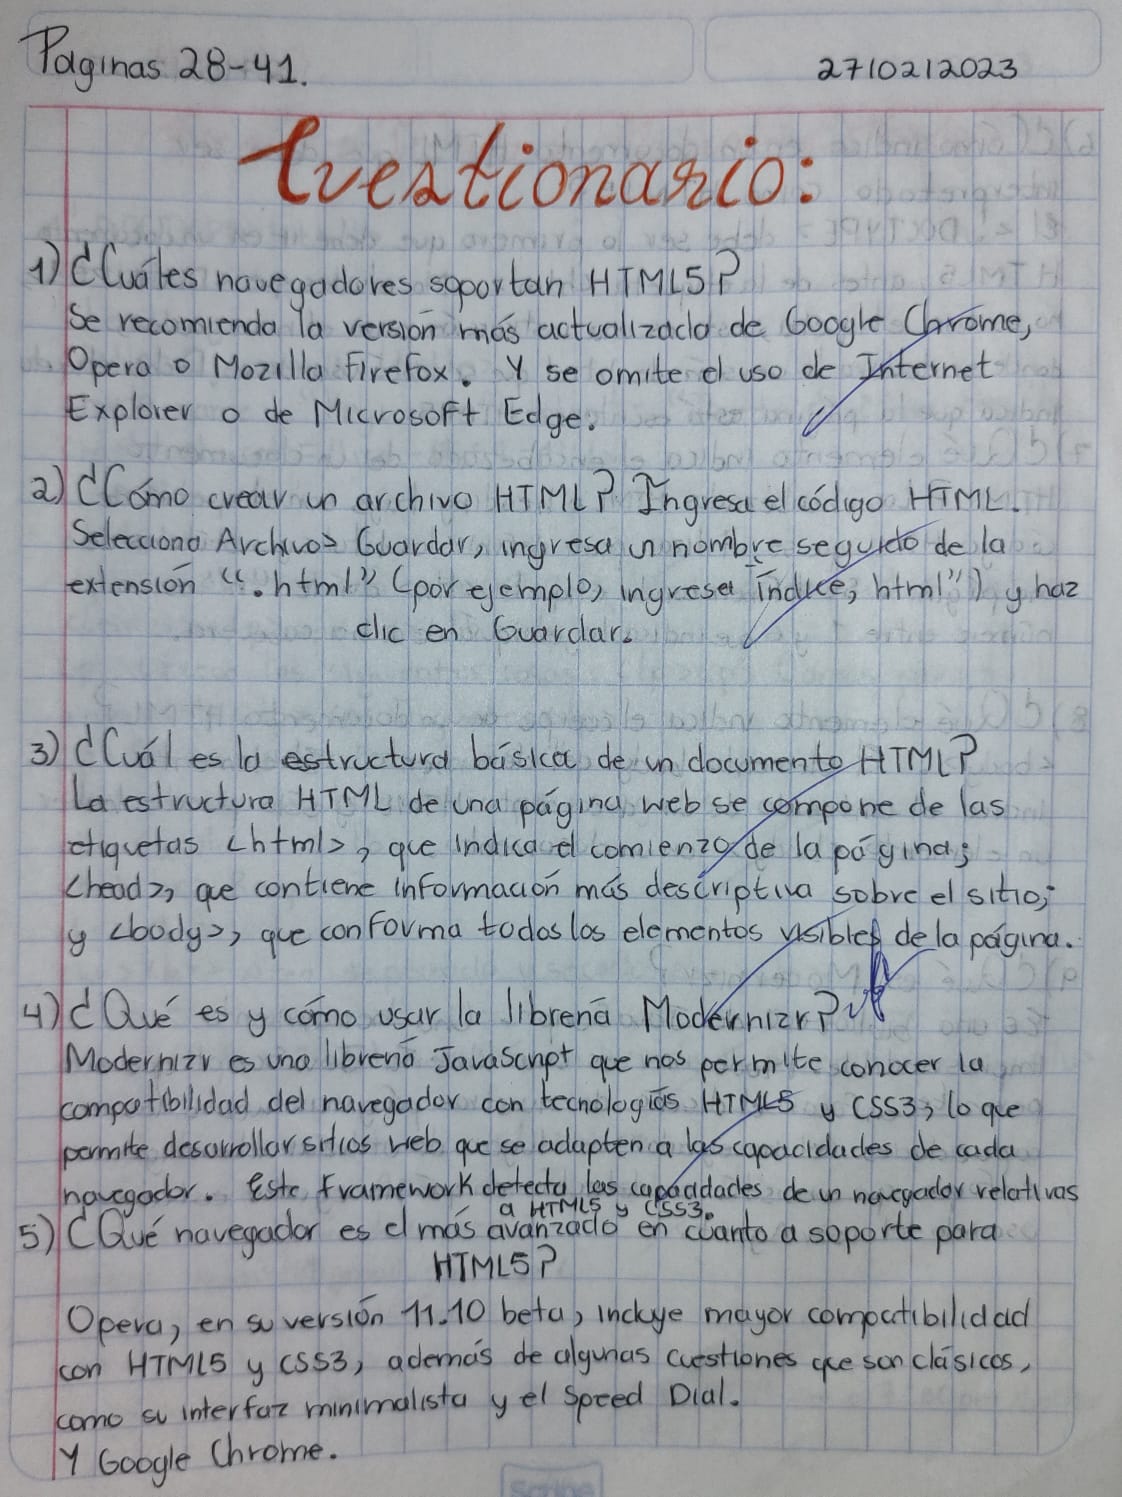 Paginas 28-41.
27/02/2023
Cuestionario:
1) ¿Cuáles navegadores soportan HTML5?
Se recomienda la versión más actualizada de Google Chrome,
Opera o Mozilla Firefox. Y se omite el uso de Internet
Explorer o de Microsoft Edge.
2) ¿Cómo crear un archivo HTML? Ingresa el código HTML.
Selecciona Archivo> Guardar, ingresa un nombre seguido de la
extensión ".html" (por ejemplo, ingresa "índice, html") y haz
clic en Guardar.
3) ¿Cuál es la estructura básica de un documento HTML?
La estructura HTML de una página web se compone de las
etiquetas <html>, que indica el comienzo de la página;
<head>, que contiene información más descriptiva sobre el sitio;
y <body>, que conforma todos los elementos visibles de la página.
4) ¿Qué es y cómo usar la librería Modernizr?
Modernizr es una librería JavaScript que nos permite conocer la
compatibilidad del navegador con tecnologías HTML5 y CSS3, lo que
permite desarrollar sitios web que se adapten a las capacidades de cada
navegador. Este Framework detecta las capacidades de un navegador relativas
a HTML5 y CSS3.
5) ¿Qué navegador es el más avanzado en cuanto a soporte para
HTML5?
Opera, en su versión 11.10 beta, incluye mayor compatibilidad
con HTML5 y CSS3, además de algunas cuestiones que son clásicos,
como su interfaz minimalista y el Speed Dial.
Y Google Chrome.
Scribe